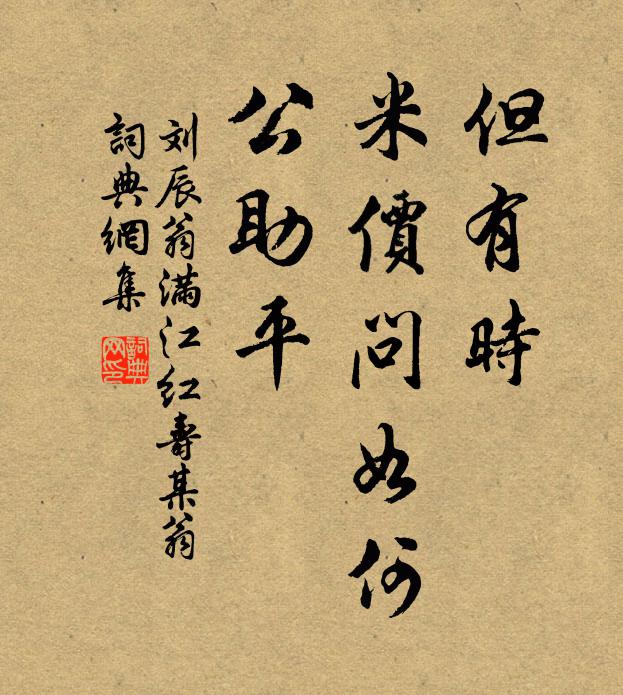 但有時
米價問如何
公助平
刘辰翁满江红壽某翁
詞典網集
詞典
网印